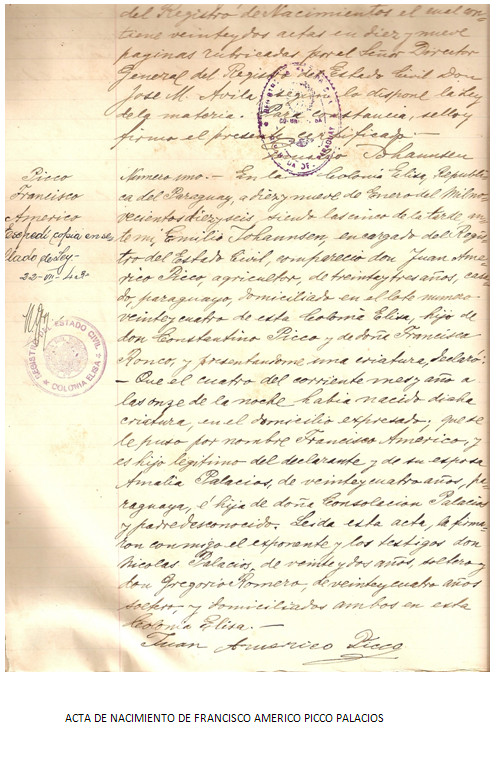 del Registro de Nacimientos el cual con-
tiene veintey dos actas en diez y nueve
paginas rubricadas, por el Señor Director
General del Registro del Estado Civil Don
Jose M. Avila segun lo dispone la Ley
de la materia. Para constancia, sello y
firmo el presente certificado.-
Johannsen
Picco
Francisco
Americo
Expedí copia en se
llado de ley-
Numero uno.- En la Colonia Elisa, Republi-
ca del Paraguay, a diez y nueve de Enero del Mil no-
vecientos diez y seis, siendo las cinco de la tarde, an-
te mi, Emilio Johannsen, encargado del Regis-
tro del Estado Civil, comparecio don Juan Ame-
rico Picco, agricultor, de treinta y tres años, casa-
do, paraguayo, domiciliado en el lote numero
veinty cuatro de esta Colonia Elisa, hijo de
don Constantino Picco y de doña Francisca
Ronco, y presentandome una criatura, declaró:
- Que el cuatro del corriente mes y año a
las onze de la noche habia nacido dicha
criatura, en el domicilio expresado; que se
le puso por nombre Francisco Americo, y
es hijo legitimo del declarante y de su esposa
Amalia Palacios, de veinty cuatro años, pa-
raguaya, é hija de doña Consolacion Palacios
y padre desconocido. Leida esta acta, la firma-
ron conmigo el exponente y los testigos don
Nicolas Palacios, de veinty dos años, soltero y
don Gregorio Romero, de veinty cuatro años
soltero, y domiciliados ambos en esta
Colonia Elisa.-
Juan Americo Picco
REGISTRO DEL ESTADO CIVIL
COLONIA ELISA
ACTA DE NACIMIENTO DE FRANCISCO AMERICO PICCO PALACIOS